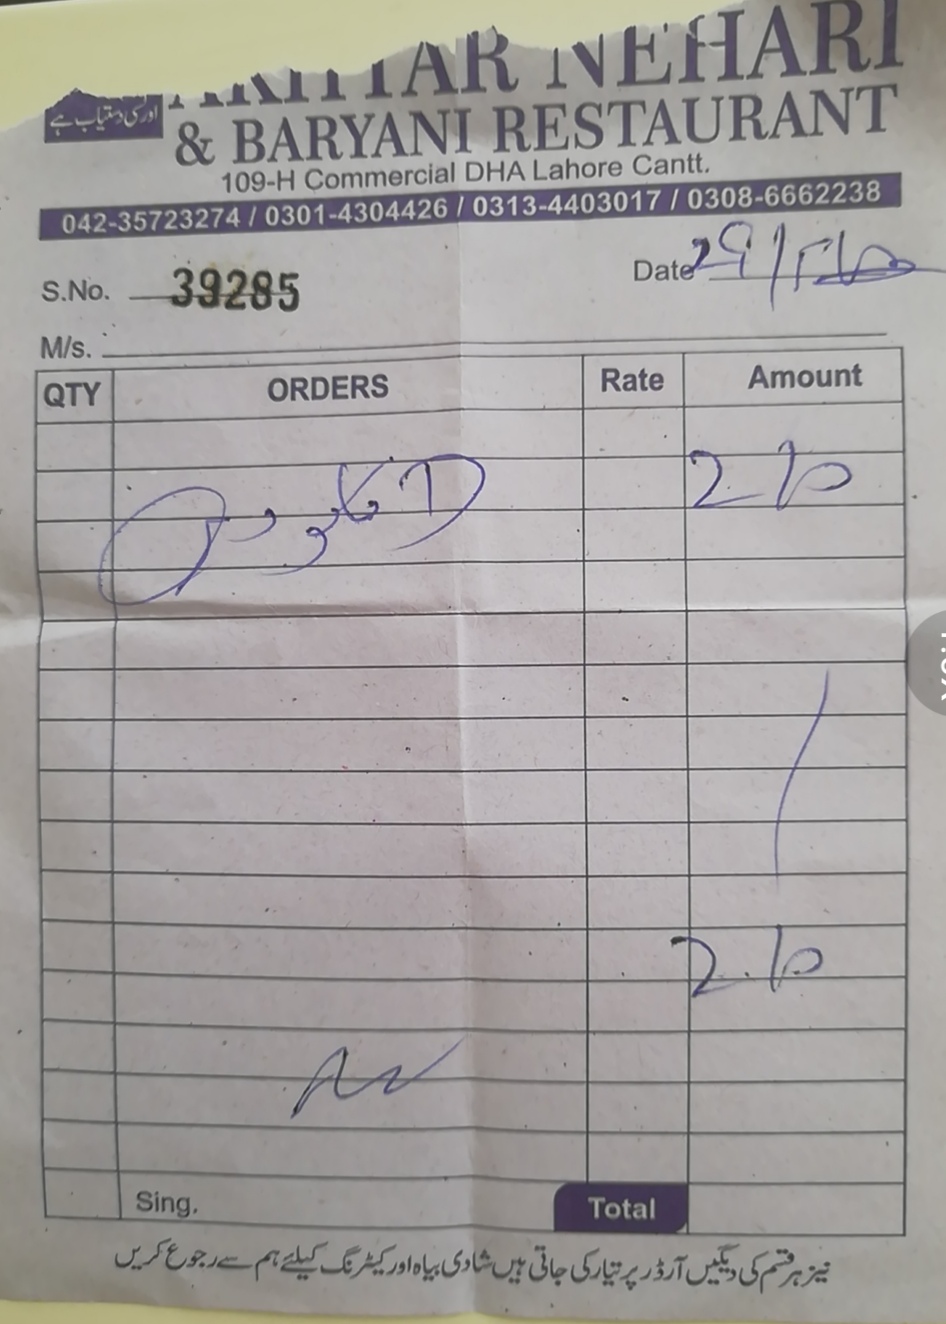 AKHTAR NEHARI
اور کی دستیاب ہے
& BARYANI RESTAURANT
109-H Commercial DHA Lahore Cantt.
042-35723274 / 0301-4304426 / 0313-4403017 / 0308-6662238
S.No. 39285
Date 29/
M/s.
QTY ORDERS Rate Amount
210
210
Sing. Total
نیز ہر قسم کی دیگیں آرڈر پر تیار کی جاتی ہیں شادی بیاہ اور کیٹرنگ کیلئے ہم سے رجوع کریں